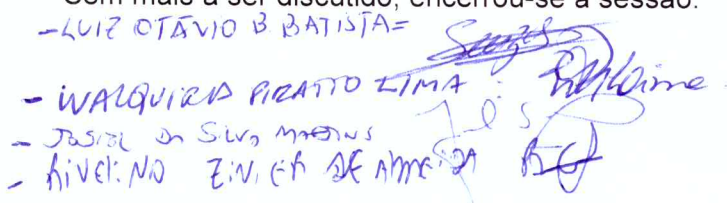 Sem mais a ser discutido, encerrou-se a sessão.
- LUIZ OTÁVIO B BATISTA =
- WALQUIRIA PIRATTO LIMA
- JOSIEL DA SILVA MARTINS
- RIVELINO DE ALMEIDA